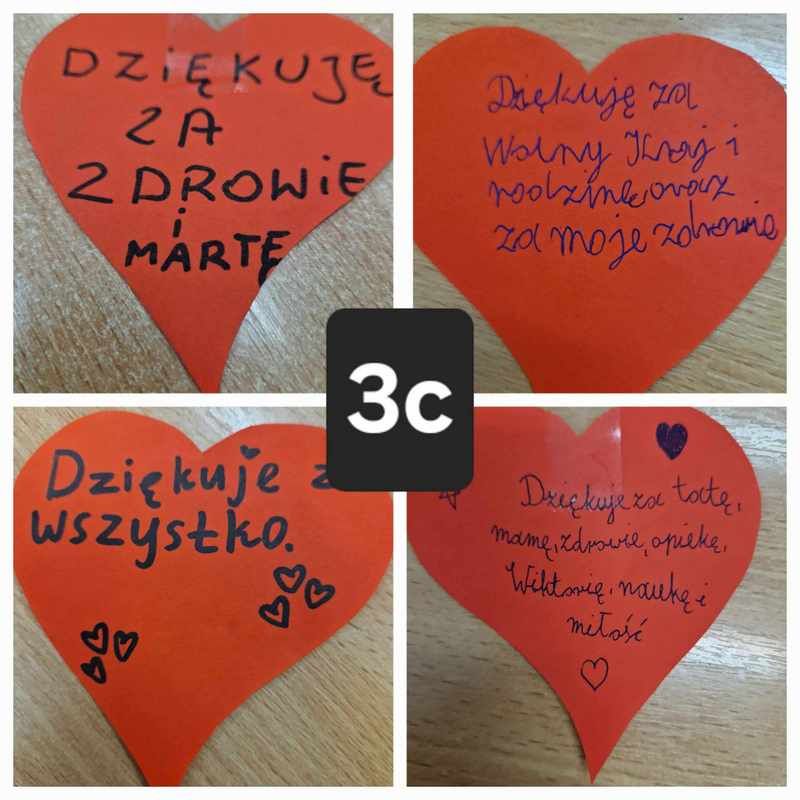 DZiĘKUJĘ
ZA
ZDROWiE
i
MARTĘ
Dziękuję za
Wolny Kraj i
rodzinę, oraz
za moje zdrowie
3c
Dziękuje z
wszystko.
Dziękuje za tatę,
mamę, zdrowie, opiekę,
Wiktorię, naukę i
miłość